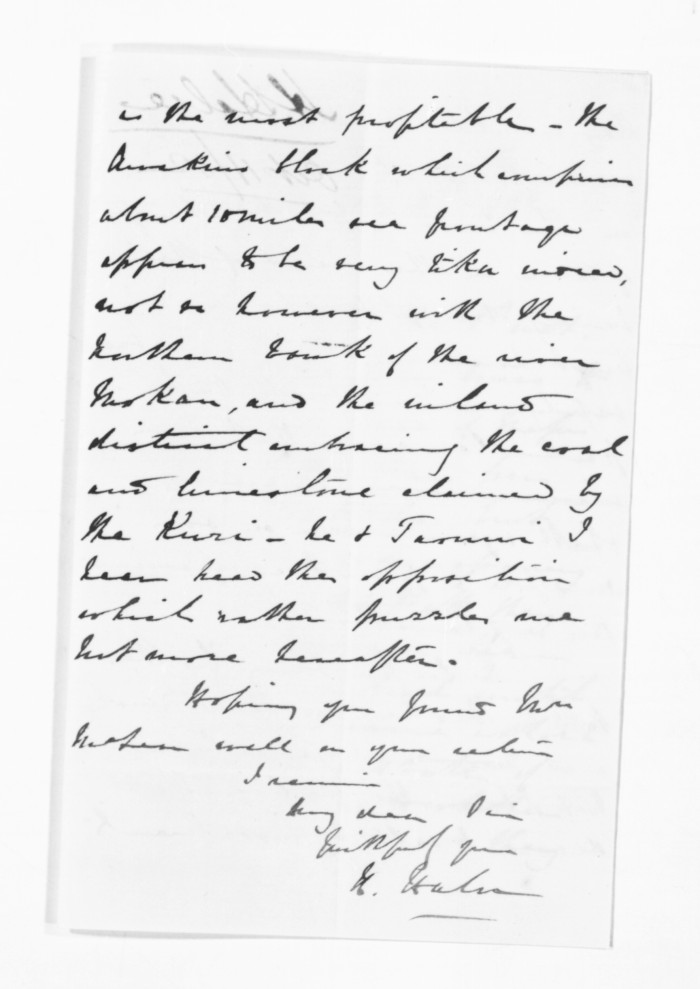 is the most profitable - the
Awakino block which comprises
about 10 miles sea frontage
appears to be very like mixed,
not so however with the
Northern bank of the river
Mokau, and the inland
district embracing the coal
and limestone claimed by
the Kuri - he & Taonui I
hear head the opposition
which rather puzzles me
but more hereafter.
Hoping you found Mrs
McLean well on your return
I remain
My dear Sir
Faithfully yours
H. Halse